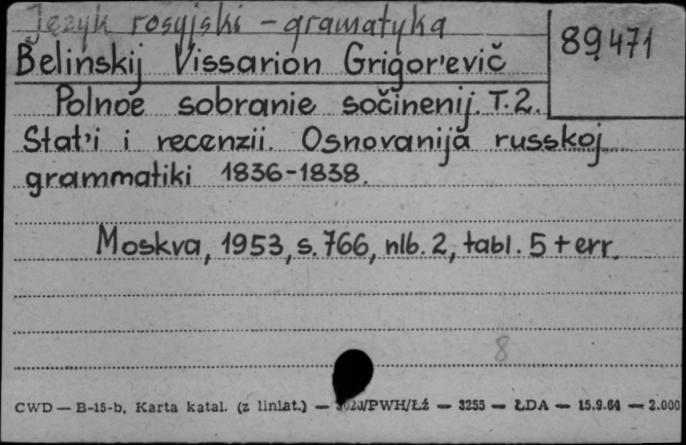 Język rosyjski - gramatyka
89471
Belinskij Vissarion Grigor'evič
Polnoe sobranie sočinenij. T.2.
Stat'i i recenzii. Osnovanija russkoj
grammatiki 1836-1838.
Moskva, 1953, s. 766, nlb. 2, tabl. 5 + err.
8
CWD — B-15-b, Karta katal. (z liniat.) — /PWH/Łź — 3255 — ŁDA — 15.9.64 — 2.000